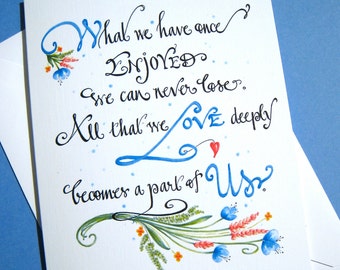 What we have once
ENJOYED
we can never lose.
All that we LOVE deeply
becomes a part of Us.